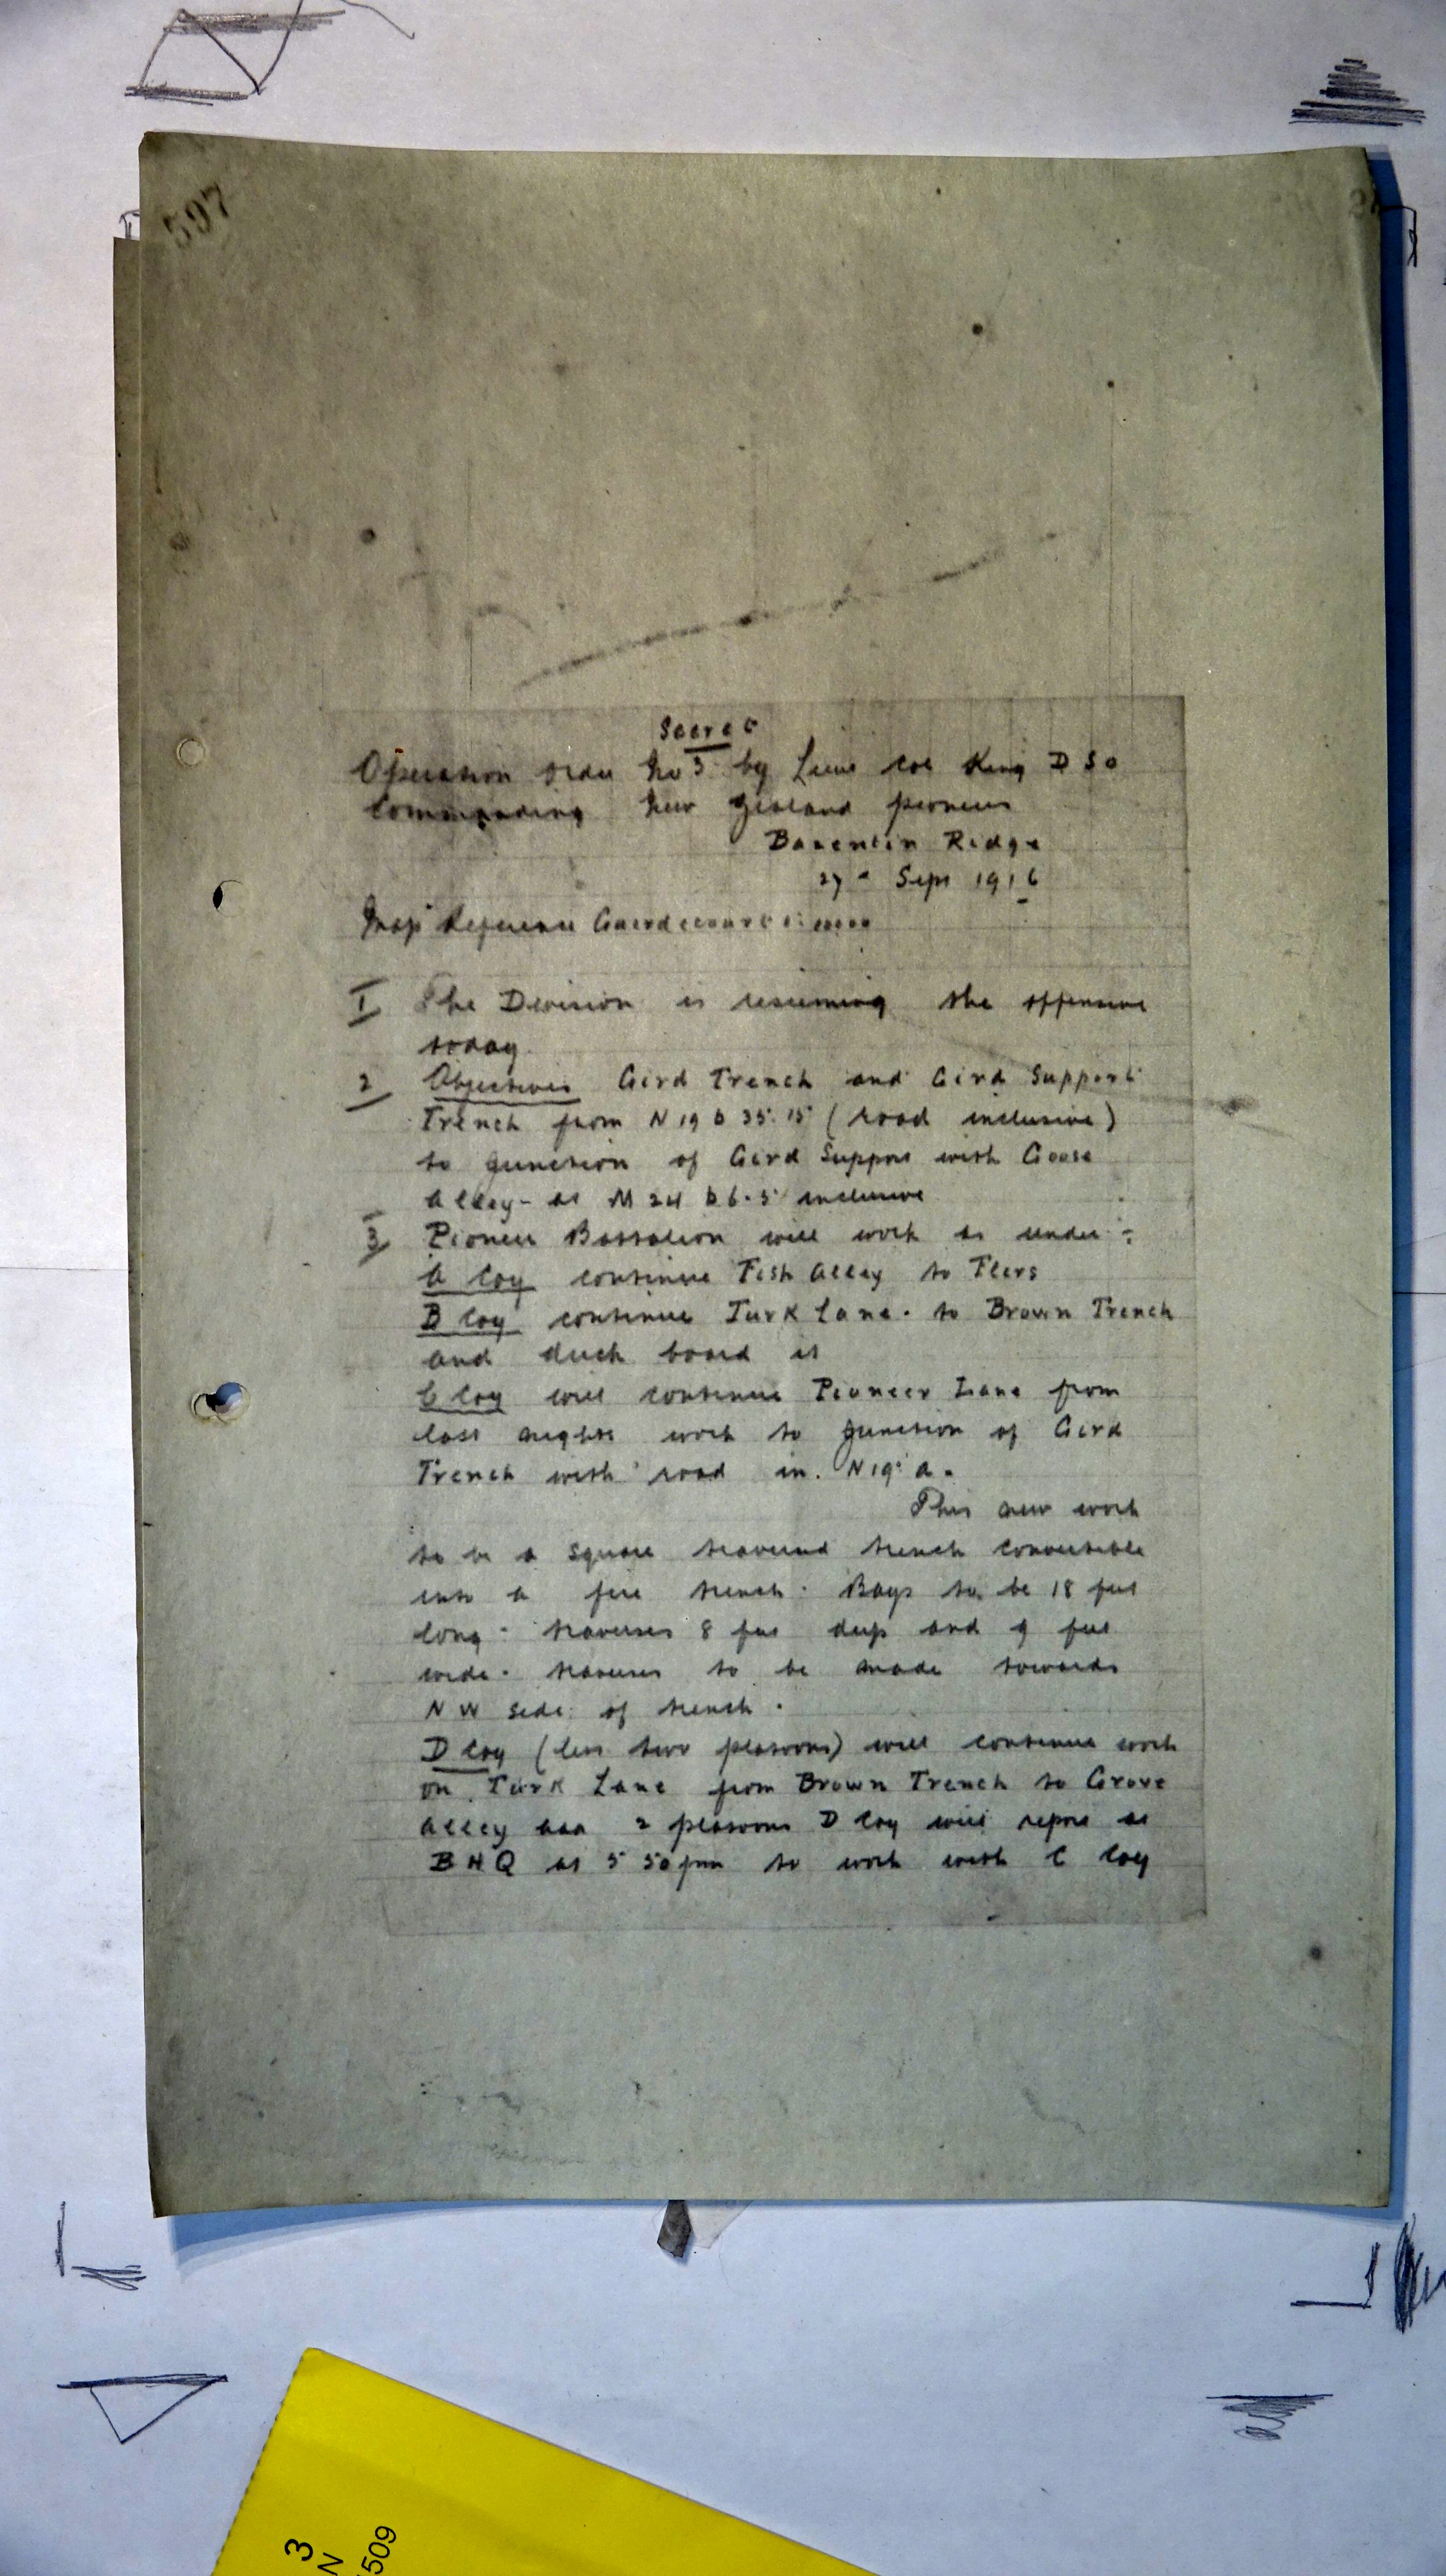 597
Secret
Operation Order No 3 by Lieut Col King D S O
Commanding New Zealand Pioneers
Bazentin Ridge
27th Sept 1916
Map Reference Gueudecourt 1:10000
1 The Division is resuming the offensive
today.
2 Objectives Gird Trench and Gird Support
Trench from N 19 b 35.15 (road inclusive)
to junction of Gird Support with Goose
Alley - at M 24 b 6.5 inclusive
3 Pioneer Battalion will work as under :-
A Coy continue Fish Alley to Flers
B Coy continue Turk Lane. to Brown Trench
and duck board it
C Coy will continue Pioneer Lane from
last nights work to junction of Gird
Trench with road in. N 19 a.
This new work
to be a square traversed trench convertible
into a fire trench. Bays to be 18 feet
long - traverses 8 feet deep and 9 feet
wide. traverses to be made towards
N W side of trench.
D Coy (less two platoons) will continue work
on Turk Lane from Brown Trench to Grove
Alley 2 platoons D Coy will report at
B H Q at 5 50 pm to work with C Coy
3
N
509